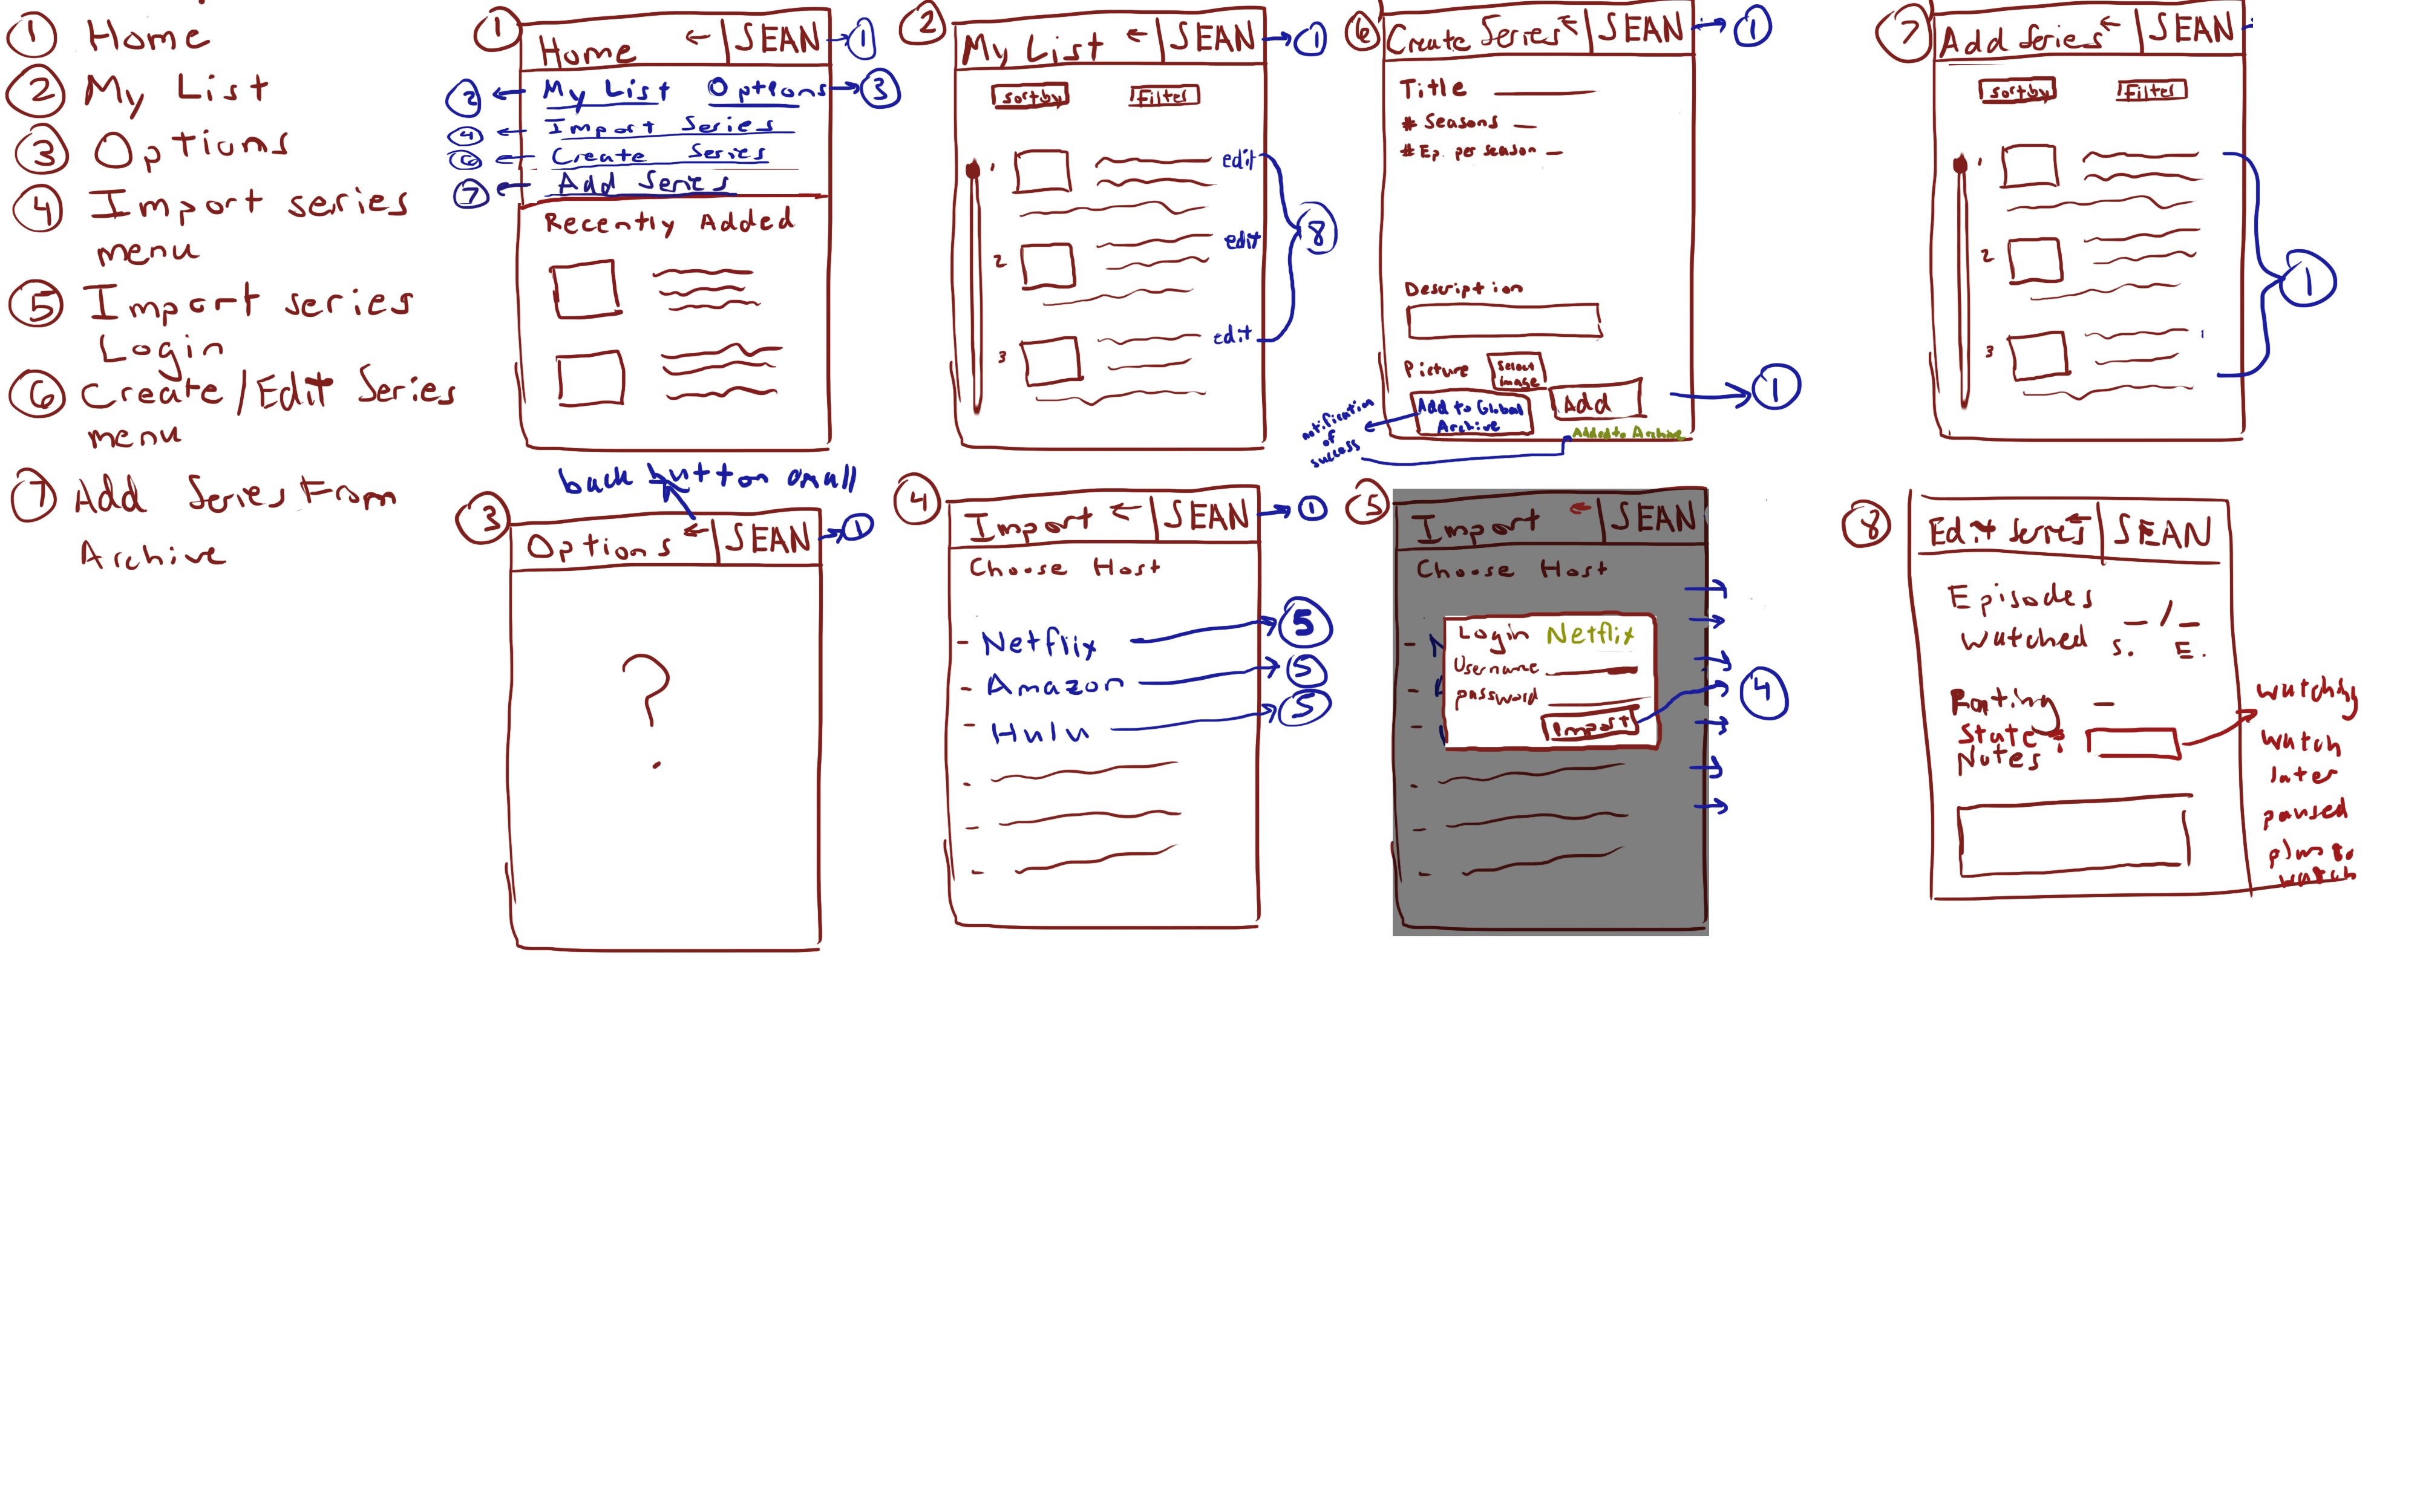 ① Home
② My List
③ Options
④ Import series
menu
⑤ Import series
Login
⑥ Create/Edit Series
menu
⑦ Add Series From
Archive
①
Home ← SEAN → ①
② ← My List Options → ③
④ ← Import Series
⑥ ← Create Series
⑦ ← Add Series
Recently Added
②
My List ← SEAN → ①
sort by Filter
1 edit
2 edit
3 edit
8
⑥
Create Series ← SEAN → ①
Title
# Seasons
# Ep. per season
Description
Picture Select
image
Add to Global
Archive
Add → ①
notification
of
success
Added to Archive
⑦
Add Series ← SEAN
sort by Filter
1
2
3
①
back button on all
③
Options ← SEAN → ①
?
④
Import ← SEAN → ①
Choose Host
- Netflix → ⑤
- Amazon → ⑤
- Hulu → ⑤
⑤
Import ← SEAN
Choose Host
Login Netflix
Username
password
Import
④
⑧
Edit Series ← SEAN
Episodes
watched _ / _
S. E.
Rating _
State:
Notes
watching
watch
later
paused
plan to
watch